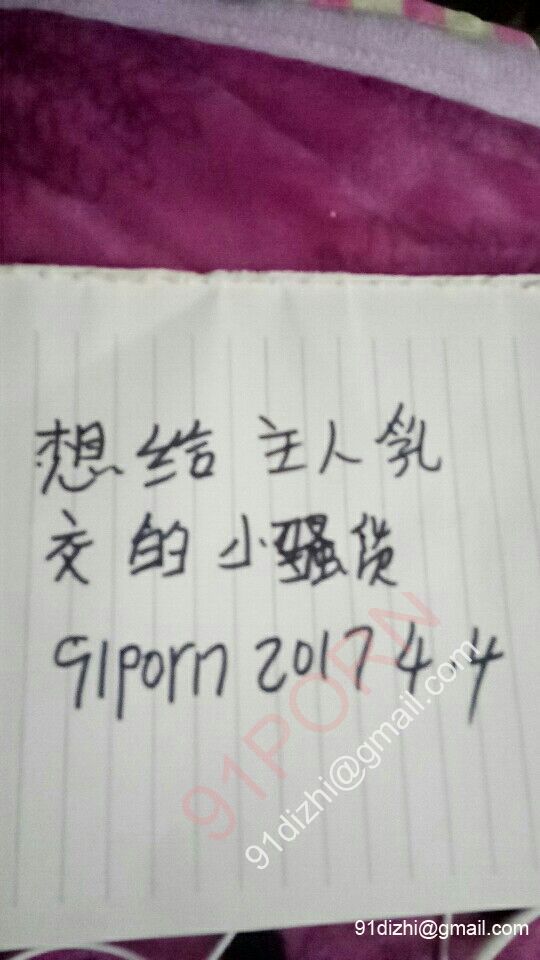 想给主人乳
交的小骚货
91porn 2017 4.4
91PORN
91dizhi@gmail.com
91dizhi@gmail.com